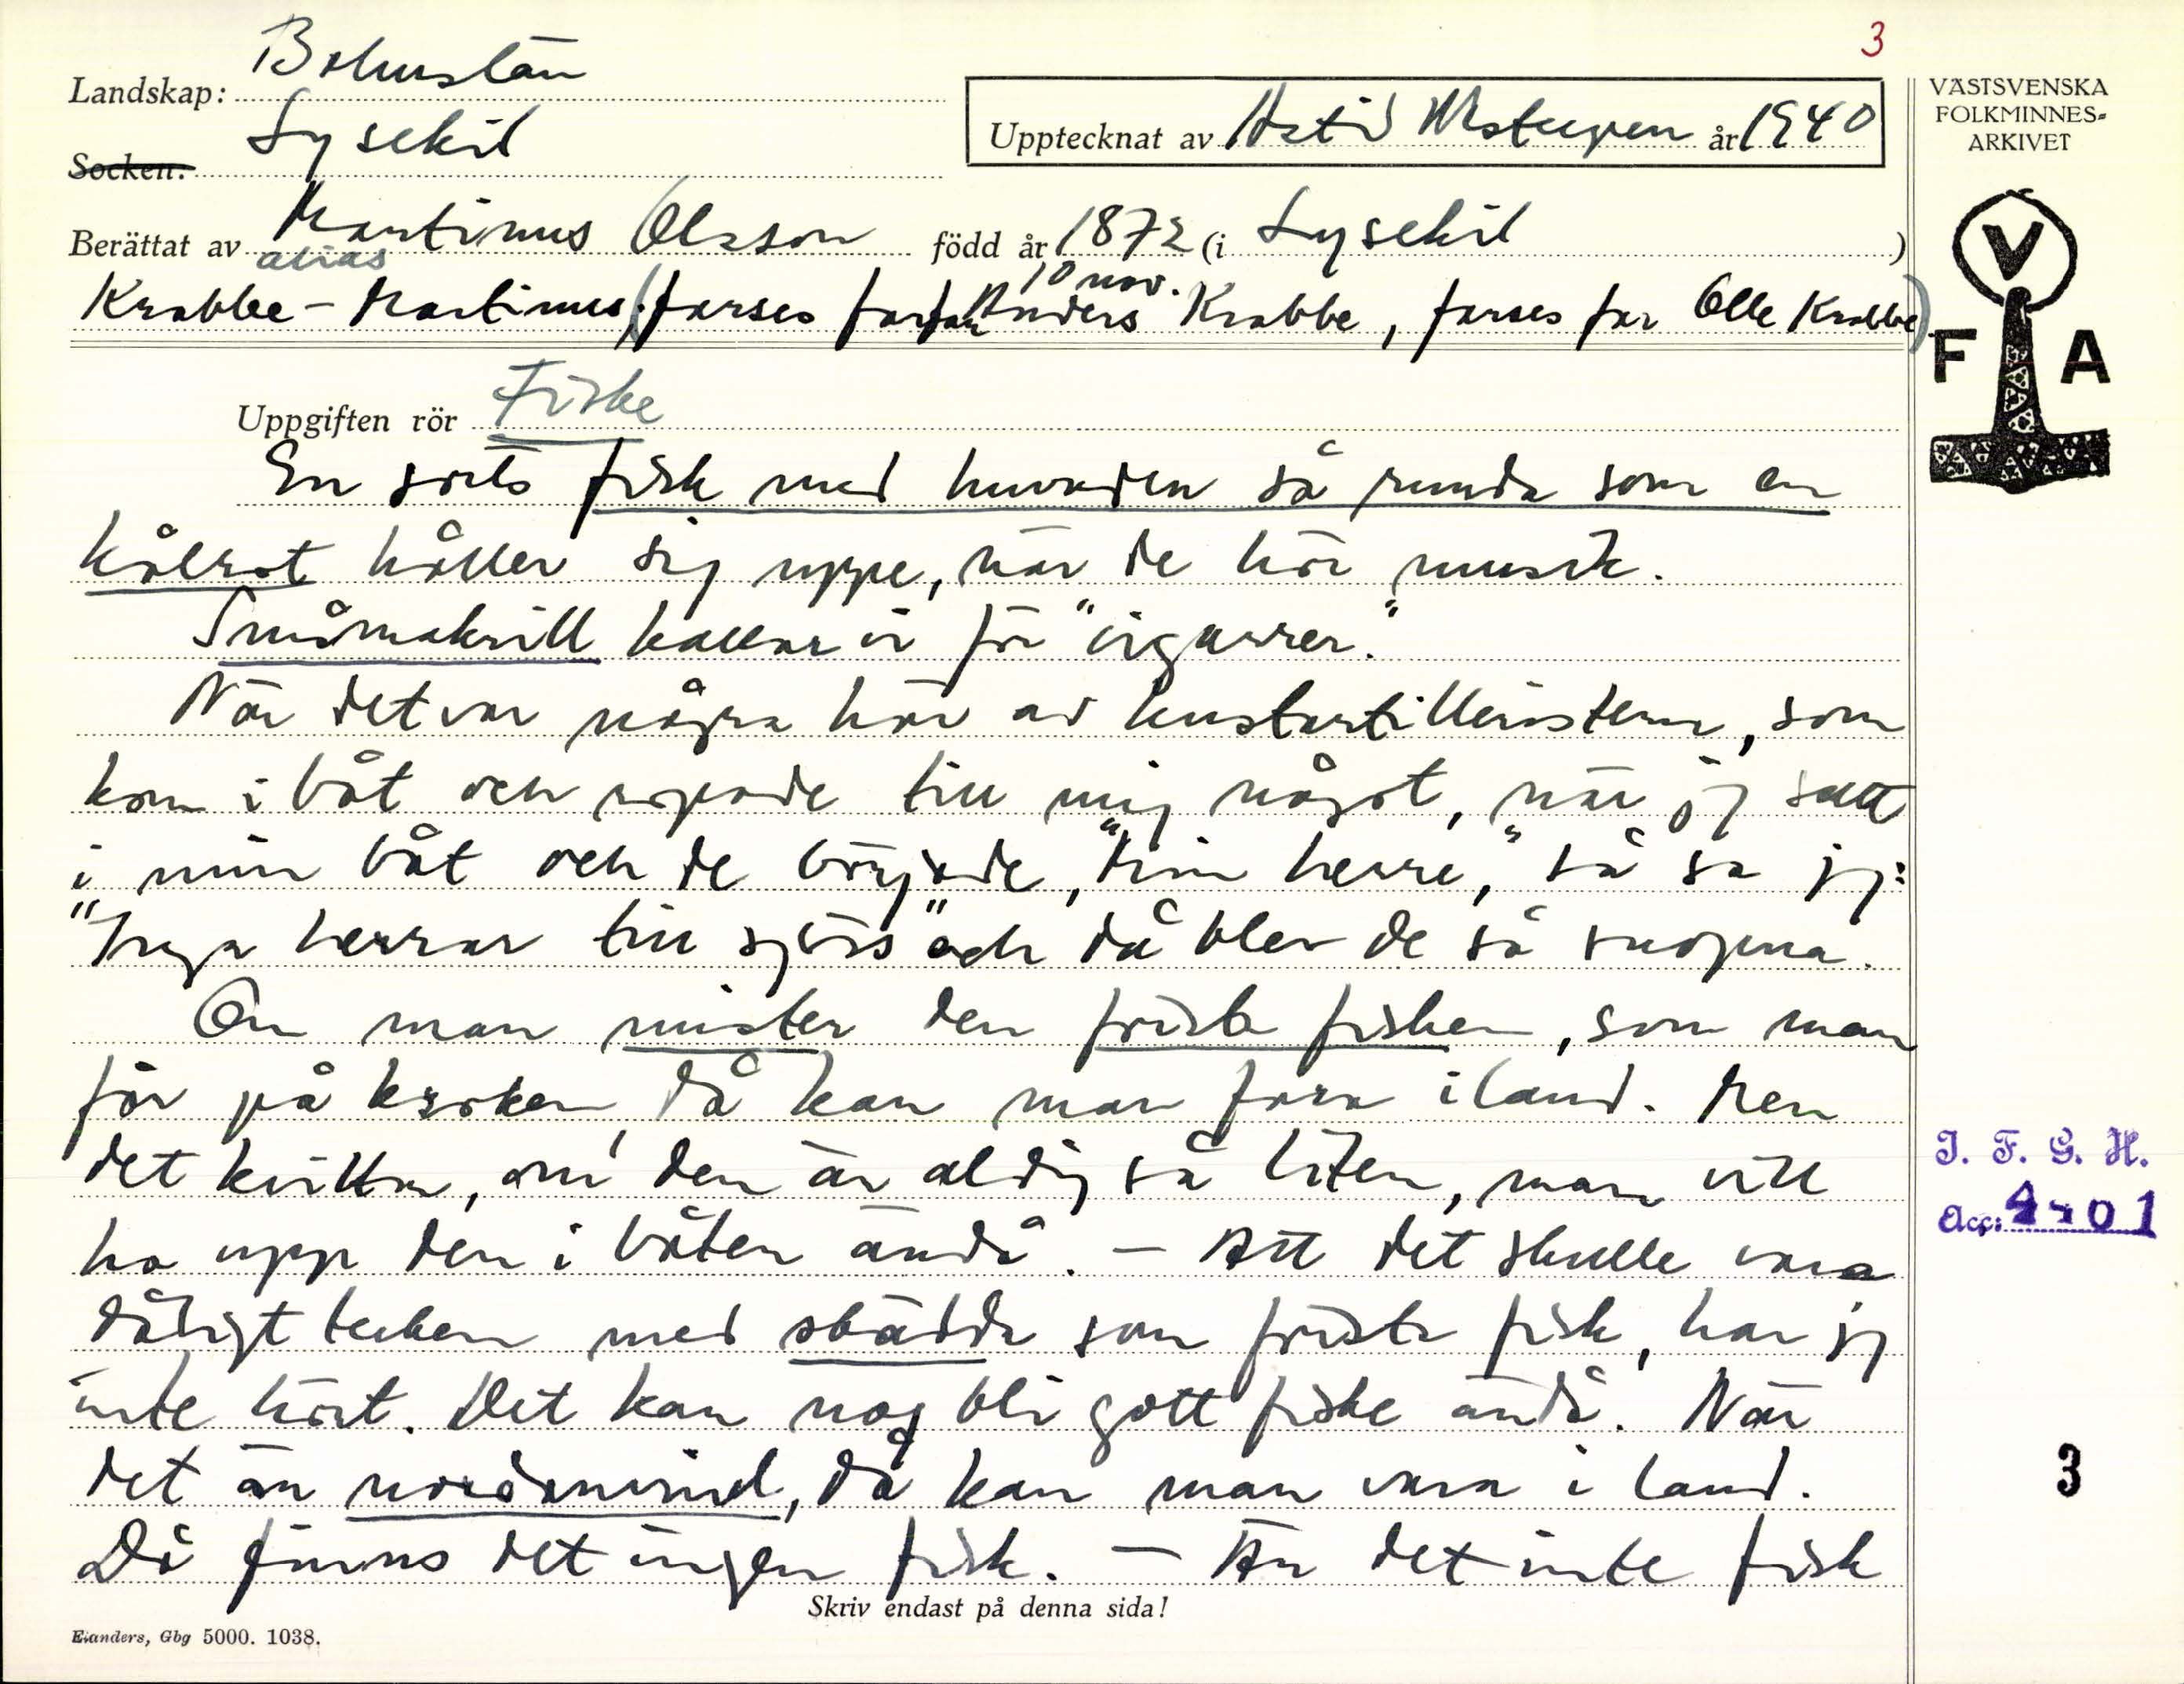 3
Landskap: Bohuslän
Socken: Lysekil
Upptecknat av år 1940
VÄSTSVENSKA
FOLKMINNES-
ARKIVET
V
F A
Berättat av Martinus Olsson född år 1872 (i Lysekil)
alias 10 nov.
Krabbe-Martinus (farfars farfar Anders Krabbe, farfars far Olle Krabbe)
Uppgiften rör Fiske
En sorts fisk med huvuden så runda som en
kålrot håller sig uppe, när de hör musik.
Småmakrill kallar vi för "cigarrer."
När det var några här av kustartilleristerna, som
kom i båt och ropade till mig något, när jag satt
i min båt och de började, "min herre," så sa jag:
"Inga herrar till sjöss" och då blev de så snopna.
Om man mister den första fisken, som man
får på kroken, då kan man fara i land. Men
det kvittar, om den är aldrig så liten, man vill
ha upp den i båten ändå. - Att det skulle vara
dåligt tecken med skädda som första fisk, har jag
inte hört. Det kan nog bli gott fiske ändå. När
det är nordanvind, då kan man vara i land.
Då finns det ingen fisk. - Är det inte fisk
Skriv endast på denna sida!
Elanders, Gbg 5000. 1038.
I. F. G. H.
Acc: 4501
3